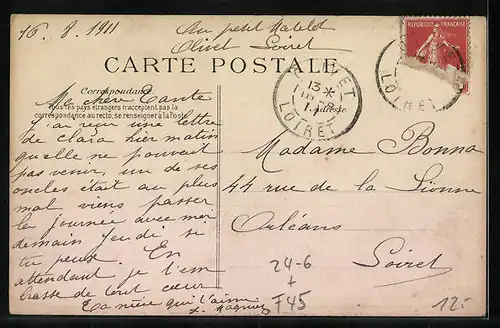 16. 8. 1911
Au petit Matelot
Olivet Loiret
CARTE POSTALE
Correspondance
Tous les pays étrangers n'acceptent pas la
correspondance au recto, se renseigner à la Poste
Adresse
Ma chère Tante
J'ai reçu une lettre
de Clara hier matin
qu'elle ne pouvait
pas venir, un de ses
oncles était au plus
mal viens passer
la journée avec moi
demain Jeudi si
tu peux. En
attendant je t'em
brasse de tout cœur
Ta nièce qui t'aime
Madame Bonna
44 rue de la Lionne
Orléans
Loiret
OLIVET
13 *
LOIRET
LOIRET
REPUBLIQUE FRANÇAISE
24-6
+
F45
12.-